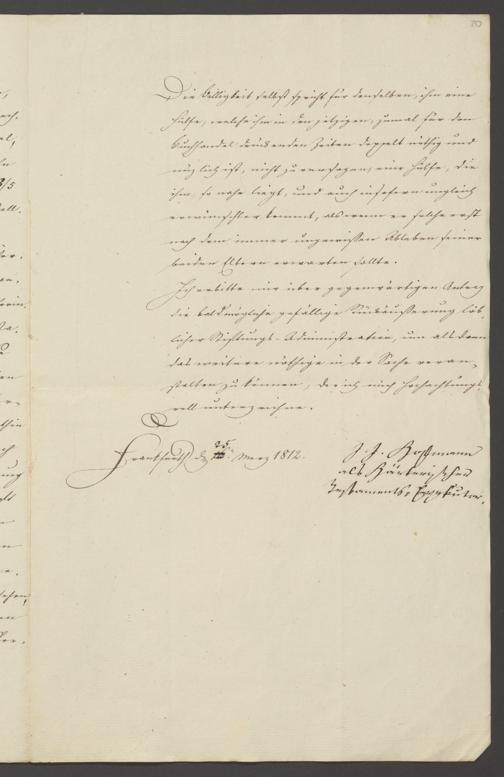 70
Die Billigkeit selbst spricht für denselben, ihm eine
Hülfe, welche ihm in den jetzigen, zumal für den
Buchhandel drückenden Zeiten doppelt nöthig und
nüzlich ist, nicht zu versagen; eine Hülfe, die
ihm so nahe liegt, und auch insofern ungleich
erwünschter kommt, als wenn er solche erst
nach dem immer ungewissen Ableben seiner
beiden Eltern erwarten sollte.
Ich erbitte mir über gegenwärtigen Antrag
die baldmöglichste gefällige Rückäußerung löb-
licher Stiftungs-Administration, um alsdann
das weitere nöthige in der Sache veran-
stalten zu können, der ich mich hochachtungs-
voll unterzeichne.
Frankfurth d. 25. Merz 1812.
J. J.
als
Testaments, Exekutor.